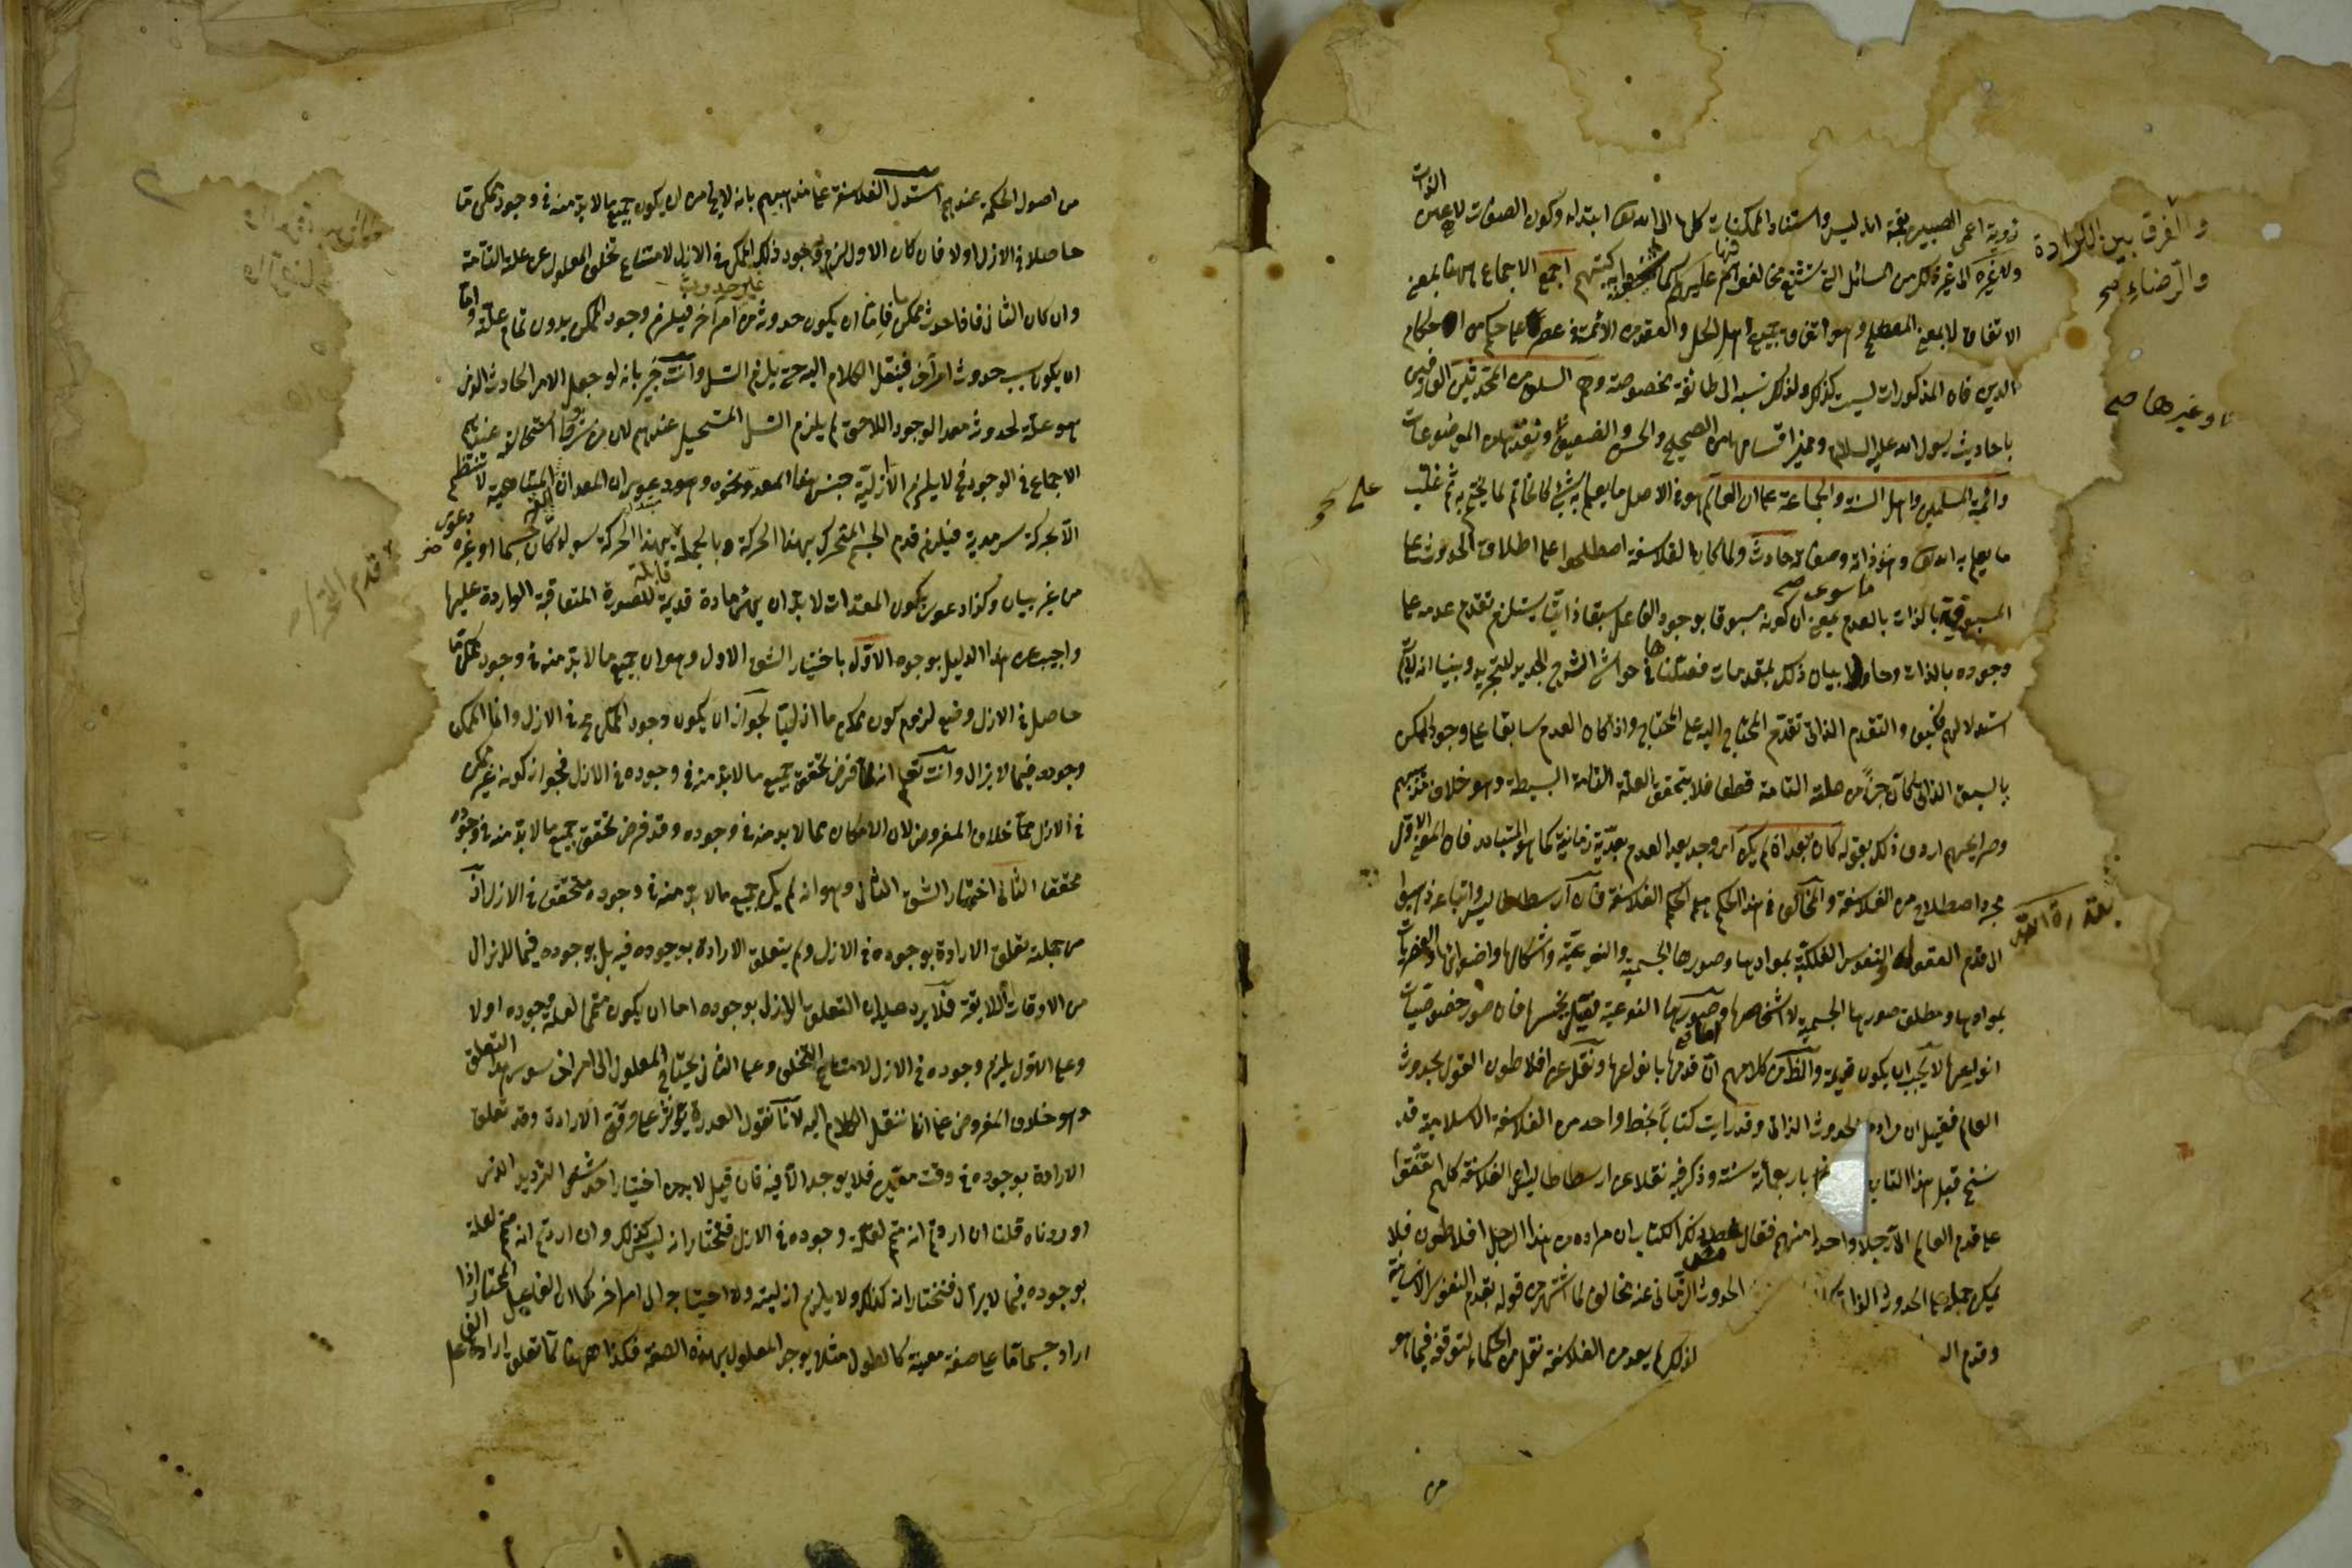 رؤية اعمى الصين بقة اندلس واستناد الممكنات كلها الى الله تعالى ابتداء وكون الصفات لا عين الذات
ولا غيره الى غير ذلك من المسائل التي شنع مخالفوهم فيها عليهم كما في كتبهم اجمع الاجماع ههنا بمعنى
الاتفاق لا بمعنى المصطلح وهو اتفاق جميع اهل الحل والعقد من الائمة في عصر على حكم من احكام
الدين فان المذكورات ليست كذلك ولذلك نسبه الى طائفة مخصوصة وهم السلف من المحدثين العارفين
باحاديث رسول الله عليه السلام ومميز اقسامها من الصحيح والحسن والضعيف وغيرها من الموضوعات
وائمة المسلمين واهل السنة والجماعة على ان العالم هو في الاصل ما يعلم به الشيء كالخاتم لما يختم به ثم غلب على
ما يعلم به الله تعالى وهو ما سوى ذاته وصفاته حادث ولما كان الفلاسفة اصطلحوا على اطلاق الحدوث على
المسبوقية بالذات بالعدم بمعنى ان كونه مسبوقا بوجود الفاعل سبقا ذاتيا يستلزم تقدم عدمه على
وجوده بالذات وحاولوا بيان ذلك بمقدمات فصلناها في حواشي الشرح الجديد للتجريد وبينا انه لا يتم
استدلالهم فكيف والتقدم الذاتي تقدم المحتاج اليه على المحتاج واذا كان العدم سابقا على وجود الممكن
بالسبق الذاتي لكان جزأ من علته التامة قطعا فلا يتحقق العلة التامة البسيطة وهو خلاف مذهبهم
وصرايحهم اردف ذلك بقوله كان بقدرة الله بعد ان لم يكن اي وجد بعد العدم بعدية زمانية كما هو المتبادر فان المعنى الاول
مجرد اصطلاح من الفلاسفة والمخالف في هذا الحكم هم الحكم الفلاسفة فان ارسطاطاليس واتباعه ذهبوا
الى قدم العقول والنفوس الفلكية بموادها وصورها الجسمية والنوعية واشكالها واضوائها والعنصريات
بموادها ومطلق صورها الجسمية لا اشخاصها وصورها النوعية قيل بجنسها فان صور خصوصيات
انواعها لا يجب ان يكون قديمة والظاهر من كلامهم ان قدمها بانواعها ونقل عن افلاطون القول بحدوث
العالم فقيل ان مراده الحدوث الذاتي وقد رايت كتابا بخط واحد من الفلاسفة الاسلامية قد
نسخ قبل هذا التاريخ باربعمائة سنة وذكر فيه نقلا عن ارسطاطاليس ان الفلاسفة كلهم اتفقوا
على قدم العالم الا رجلا واحدا منهم فقال مصنف ذلك الكتاب ان مراده من هذا الرجل افلاطون فلا
يمكن حمله على الحدوث الذاتي الحدوث الزماني عنه مخالف لما اشتهر من قوله بقدم النفوس الانسانية
وقدم الـ لذلك لم يعد من الفلاسفة نقل من الحكماء لتوقفه فيما هو
من
والفرق بين الارادة
والرضاء صح
وغيرها صح
من اصول الحكمة عندهم استدل الفلاسفة على مذهبهم بانه لا يخ من ان يكون جميع ما لا بد منه في وجود ممكن ما
حاصلا في الازل اولا فان كان الاول لزم وجود ذلك الممكن في الازل لامتناع تخلف المعلول عن علته التامة
وان كان الثاني فاذا حدث ممكن ما فاما ان يكون حدوثه من غير حدوث امر آخر فيلزم وجود الممكن بدون تمام علته واما
ان يكون بسبب حدوث امر آخر فينقل الكلام اليه حتى يلزم التسل وانت خبير بانه لو جعل الامر الحادث الذي
هو علة لحدوثه معد الوجود اللاحق لم يلزم التسل المستحيل عندهم لان من شرط استحالته عندهم
الاجتماع في الوجود فح لا يلزم الا ازلية جنس هذا المعد ونحوه ودعوى ان المعدات الغير المتناهية لا تنتظم
الا بحركة سرمدية فيلزم قدم الجسم المتحرك بهذا الحركة وبالجملة قدم المتحرك بهذا الحركة سواء كان جسما او غيره دعوى
من غير بيان وكذا دعوى كون المعدات لا بد ان يهئ مادة قديمة قابلة للصورة المتعاقبة الواردة عليها
واجيب عن هذا الدليل بوجوه الاول باختيار الشق الاول وهو ان جميع ما لا بد منه في وجود ممكن ما
حاصل في الازل ومنع لزوم كون ممكن ما ازليا لجواز ان يكون وجود الممكن مح في الازل وانما الممكن
وجوده فيما لا يزال وانت تعلم انه لما فرض تحقق جميع ما لا بد منه في وجوده في الازل فجواز كونه غير ممكن
في الازل مما خلاف المفروض لان الامكان مما لا بد منه في وجوده وقد فرض تحقق جميع ما لا بد منه في وجوده
محقق الثاني اختيار الشق الثاني وهو انه لم يكن جميع ما لا بد منه في وجوده متحقق في الازل اذ
من جملته تعلق الارادة بوجوده في الازل ولم يتعلق الارادة بوجوده فيه بل بوجوده فيما لا يزال
من الاوقات الآتية فلا يرد عليه ان التعلق الازلي بوجوده اما ان يكون متمما لعلة وجوده اولا
وعلى الاول يلزم وجوده في الازل لامتناع التخلف وعلى الثاني يحتاج المعلول الى امر آخر سوى هذا التعلق
وهو خلاف المفروض على انا ننقل الكلام اليه لانا نقول القدرة تؤثر على وفق الارادة وقد تعلق
الارادة بوجوده في وقت معين فلا يوجد الا فيه فان قيل لا بد من اختيار احد شقي الترديد الذي
اوردناه قلنا ان اردتم انه متم لعلة وجوده في الازل فنختار انه ليس كذلك وان اردتم انه متم لعلة
بوجوده فيما لا يزال فنختار انه كذلك ولا يلزم ازليته ولا احتياجه الى امر آخر كما ان الفاعل المختار اذا
اراد جسما ما على صفة معينة كالطول مثلا يوجد المعلول بهذه الصفة فكذا ههنا لما تعلق ارادة الفاعل